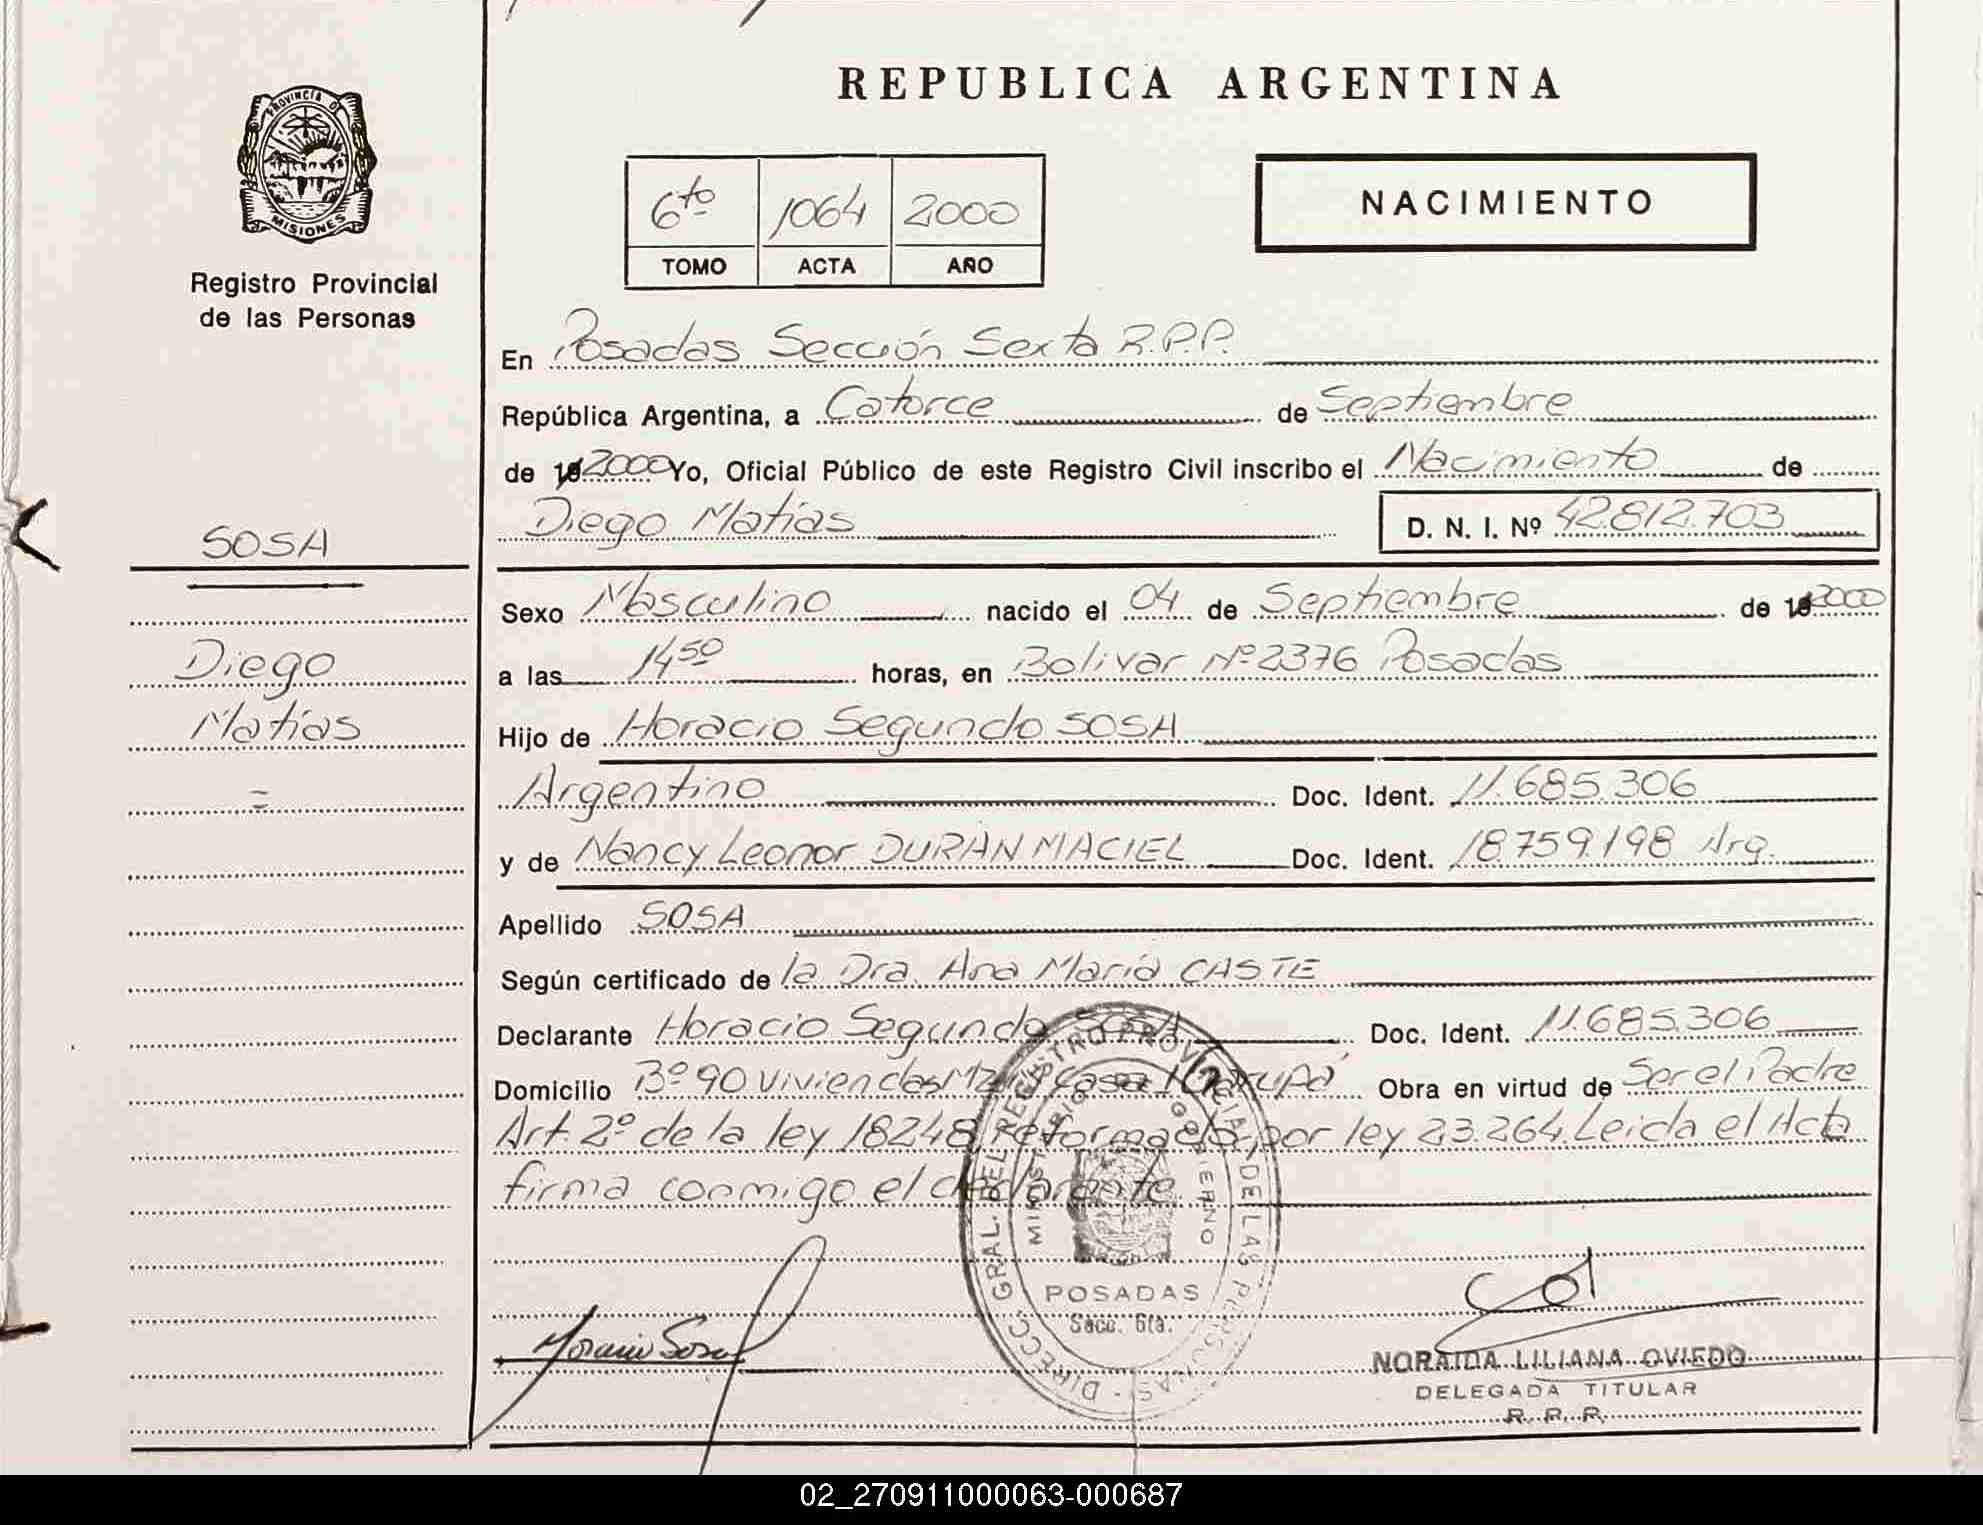 REPUBLICA ARGENTINA
PROVINCIA D
MISIONES
Registro Provincial
de las Personas
6to 1064 2000
TOMO ACTA AÑO
NACIMIENTO
En Posadas Sección Sexta R.P.P.
República Argentina, a Catorce de Septiembre
de 19 2000 Yo, Oficial Público de este Registro Civil inscribo el Nacimiento de
Diego Matías D. N. I. Nº 42.812.703
SOSA
Diego
Matías
Sexo Masculino nacido el 04 de Septiembre de 19 2000
a las 14 50 horas, en Bolivar Nº 2376 Posadas
Hijo de Horacio Segundo SOSA
Argentino Doc. Ident. 11.685.306
y de Nancy Leonor DURAN MACIEL Doc. Ident. 18.759.198 Arg.
Apellido SOSA
Según certificado de la Dra. Ana María CASTE
Declarante Horacio Segundo SOSA Doc. Ident. 11.685.306
Domicilio Bº 90 viviendas Casa Garupá Obra en virtud de Ser el Padre
Art. 2º de la ley 18248 reformado por ley 23.264. Leida el Acta
firma conmigo el declarante
DIRECC. GRAL. DEL REGISTRO PROVINCIAL DE LAS PERSONAS
MINISTERIO DE GOBIERNO
POSADAS
Secc. 6ta.
Horacio Sosa
NORAIDA LILIANA OVIEDO
DELEGADA TITULAR
R. P. P.
02_270911000063-000687